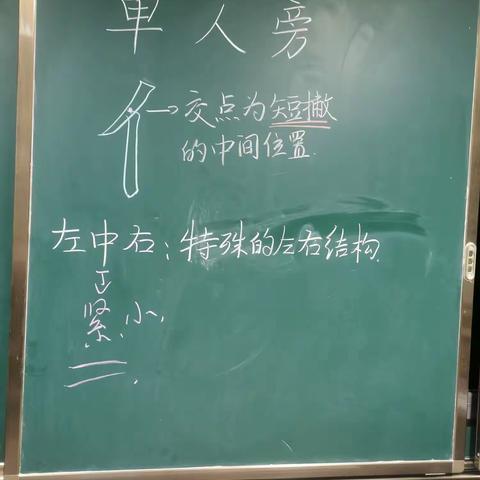 单人旁
交点为短撇
的中间位置.
左中右：特殊的左右结构.
正
紧、小.